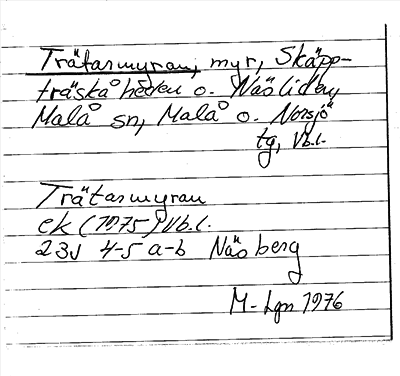 Trätarmyran, myr, Skäpp-
träskåheden o. Näsliden,
Malå sn, Malå o. Norsjö
tg, Vb.l.
Trätarmyran
ek (1975) Vb.l.
23J 4-5 a-b Näsberg
M-Lgn 1976